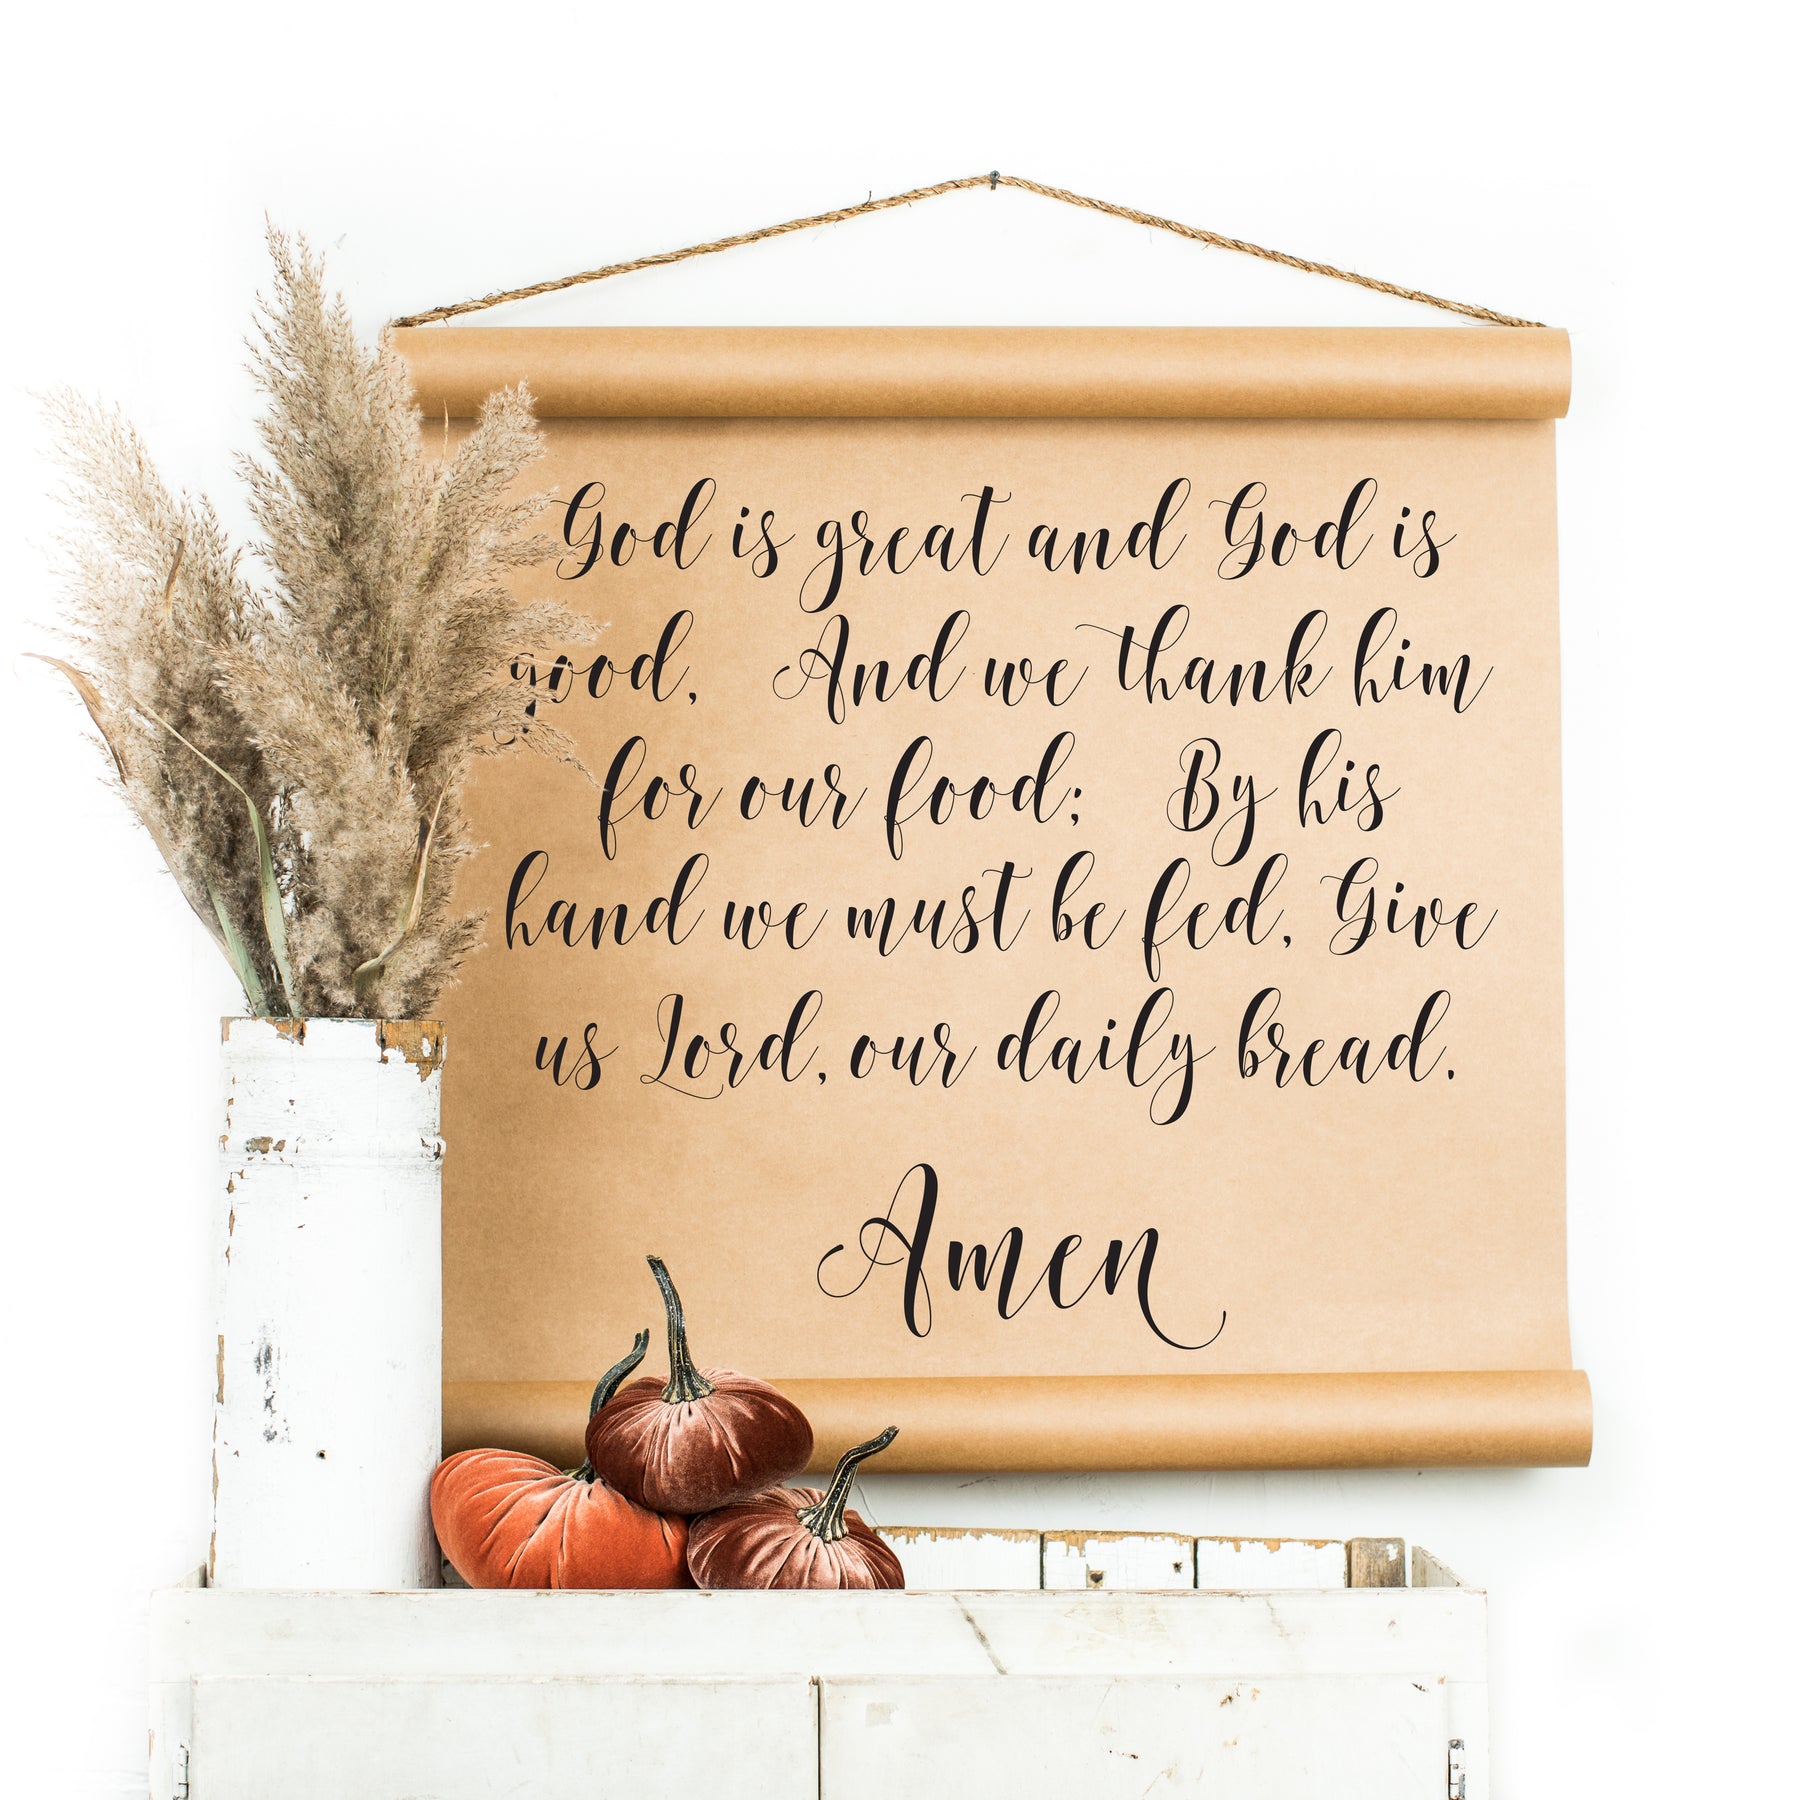 God is great and God is
good, And we thank him
for our food; By his
hand we must be fed, Give
us Lord, our daily bread.
Amen